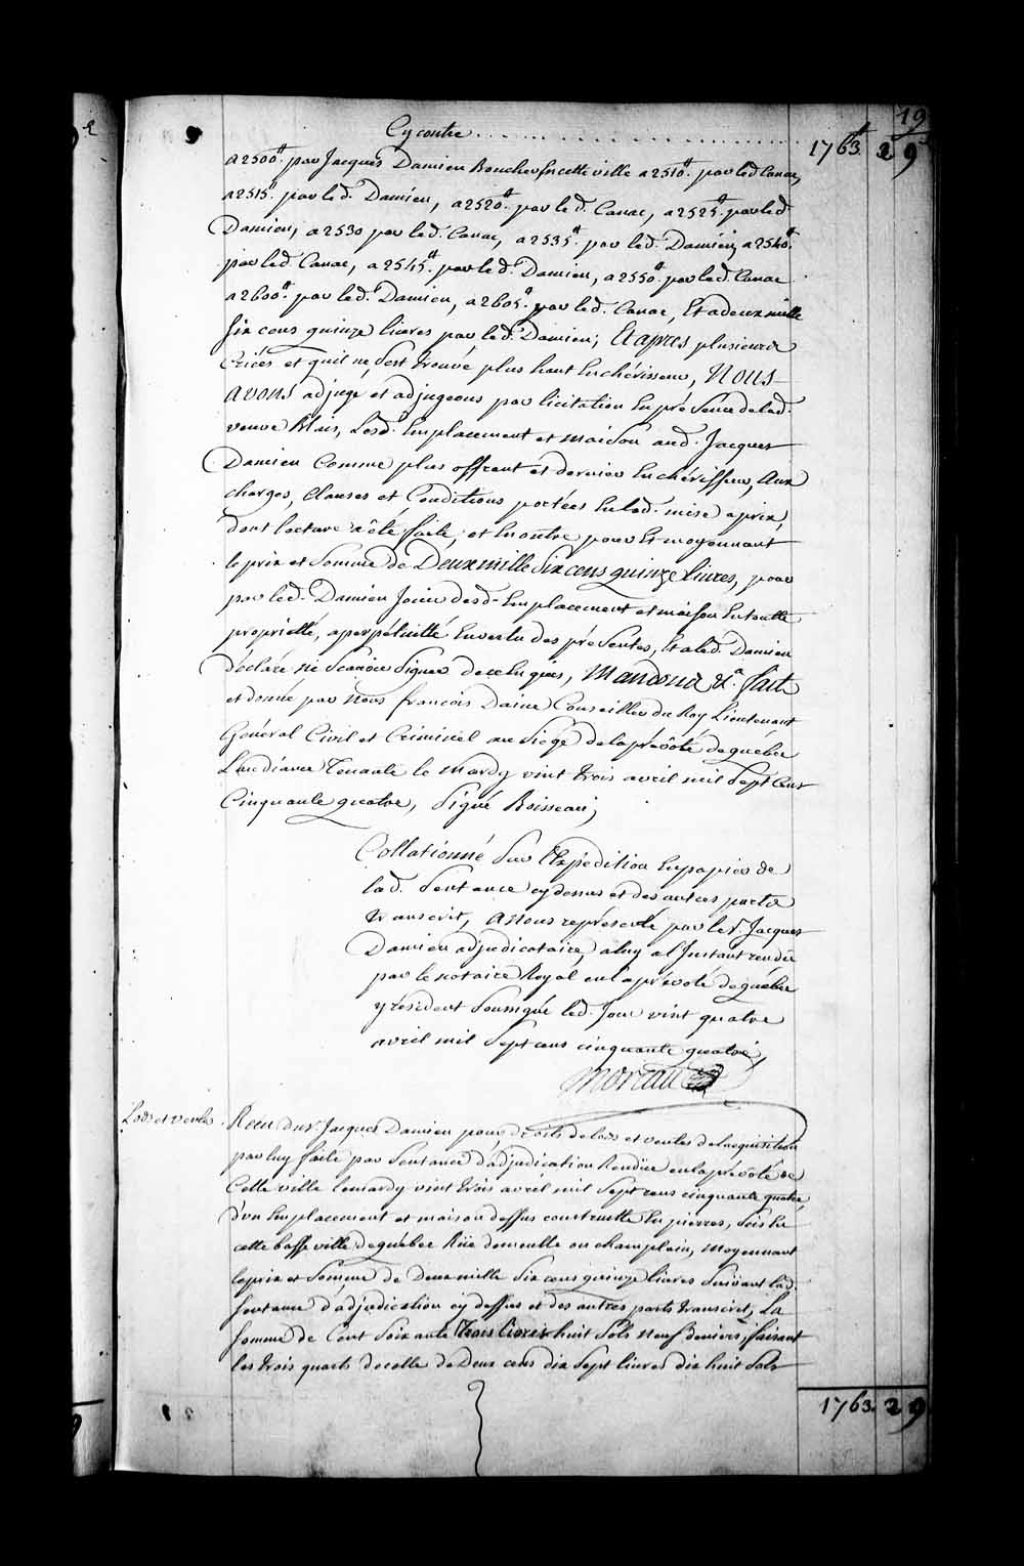 19
Cy contre . . . . . . . . . . . . . 1763# 2 9
a 2500#. par Jacques Damien Boucher en cette ville a 2510#. par led Canac,
a 2515#. par led. Damien, a 2520#. par led. Canac, a 2525#. par led
Damien, a 2530 par led. Canac, a 2535#. par led. Damien, a 2540#.
par led. Canac, a 2545#. par led. Damien, a 2550#. par led. Canac
a 2600#. par led. Damien, a 2605#. par led. Canac, Et a deux mille
six cens quinze livres par led. Damien; Et apres plusieurs
Criées et quil ne sest trouvé plus haut Encherisseur, Nous
avons adjugé et adjugeons par licitation En présence de lad.
veuve Blais, Lesd. Emplacement et maison aud. Jacques
Damien Comme plus offrent et dernier Enchérisseur, Aux
charges, Clauses et Conditions portées En lad. mise a prix,
dont lecture a été faite, et En outre pour Et moyennant
le prix et Somme de Deux mille Six cens quinze Livres, pour
par led. Damien Jouir desd. Emplacement et maison En toutte
proprietté, a perpétuitté En vertu des présentes, Et a led. Damien
déclaré ne Scavoir Signer de ce Enquis, Mandons &a. fait
et donné par Nous françois Daine Conseiller du Roy Lieutenant
Général Civil et Criminel au Siege de la prévôté de quebec
Laudiance Tenante le Mardy vint trois avril mil Sept Cens
Cinquante quatre, Signé Boisseau;
Collationné Sur l'Expédition En papier de
lad. Sentence cy dessus et des autres parts
transcrit, a Nous représenté par le Sr. Jacques
Damien adjudicataire, a luy a l'Instant rendüe
par le notaire Royal en la prévoté de quebec
y résident Soussigné led. Jour vint quatre
avril mil Sept cens cinquante quatre,
Moreau
Lods et ventes Receu du Sr. Jacques Damien pour droits de lods et ventes de lacquisition
par luy faite par Sentance d'adjudication Rendüe en la prévoté de
Cette ville le mardy vint trois avril mil Sept cens cinquante quatre,
d'un Emplacement et maison dessus construitte En pierres, Scis En
cette basse ville de quebec Rüe demeulle ou champlain, Moyennant
le prix et Somme de Deux mille Six cens quinze livres Suivant lad.
Sentence d'adjudication cy dessus et des autres parts transcrit, La
Somme de Cent Soixante Trois Livres huit Sols neuf deniers, faisant
les trois quarts de celle de Deux cens dix Sept livres dix huit Sols
1763. 2 9